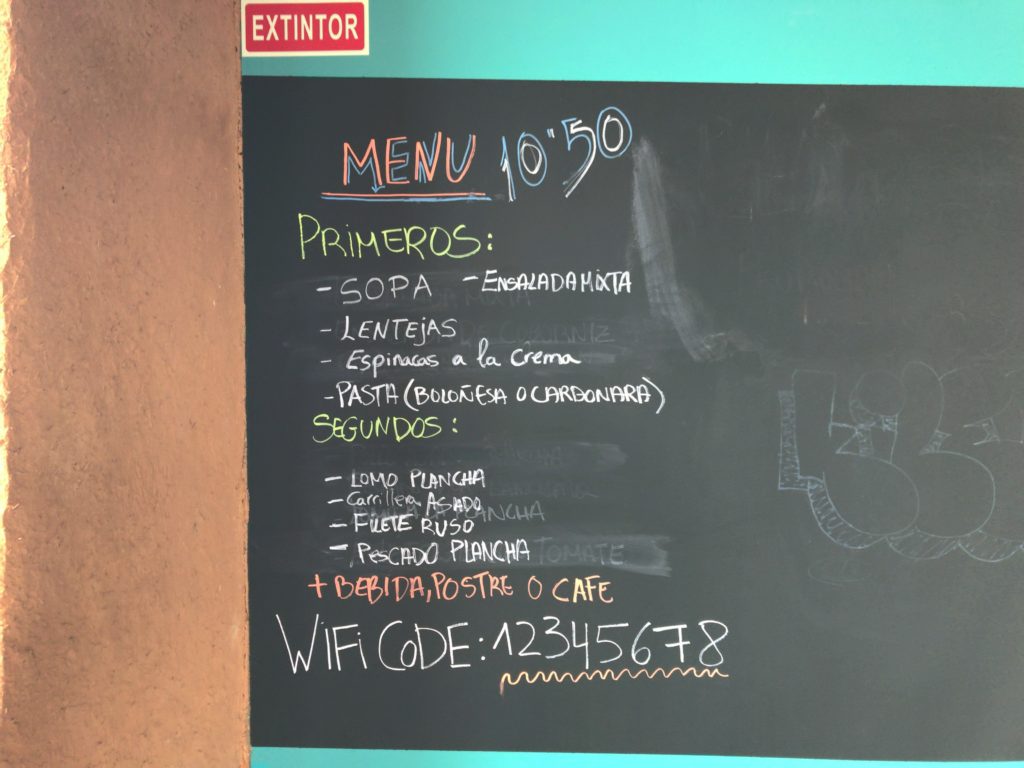 EXTINTOR
MENU 10"50
PRIMEROS:
- SOPA - ENSALADA MIXTA
- LENTEJAS
- Espinacas a la crema
- PASTA (BOLOÑESA O CARBONARA)
SEGUNDOS:
- LOMO PLANCHA
- Carrillera ASADO
- FILETE RUSO
- PESCADO PLANCHA TOMATE
+ BEBIDA, POSTRE O CAFE
WIFI CODE: 12345678